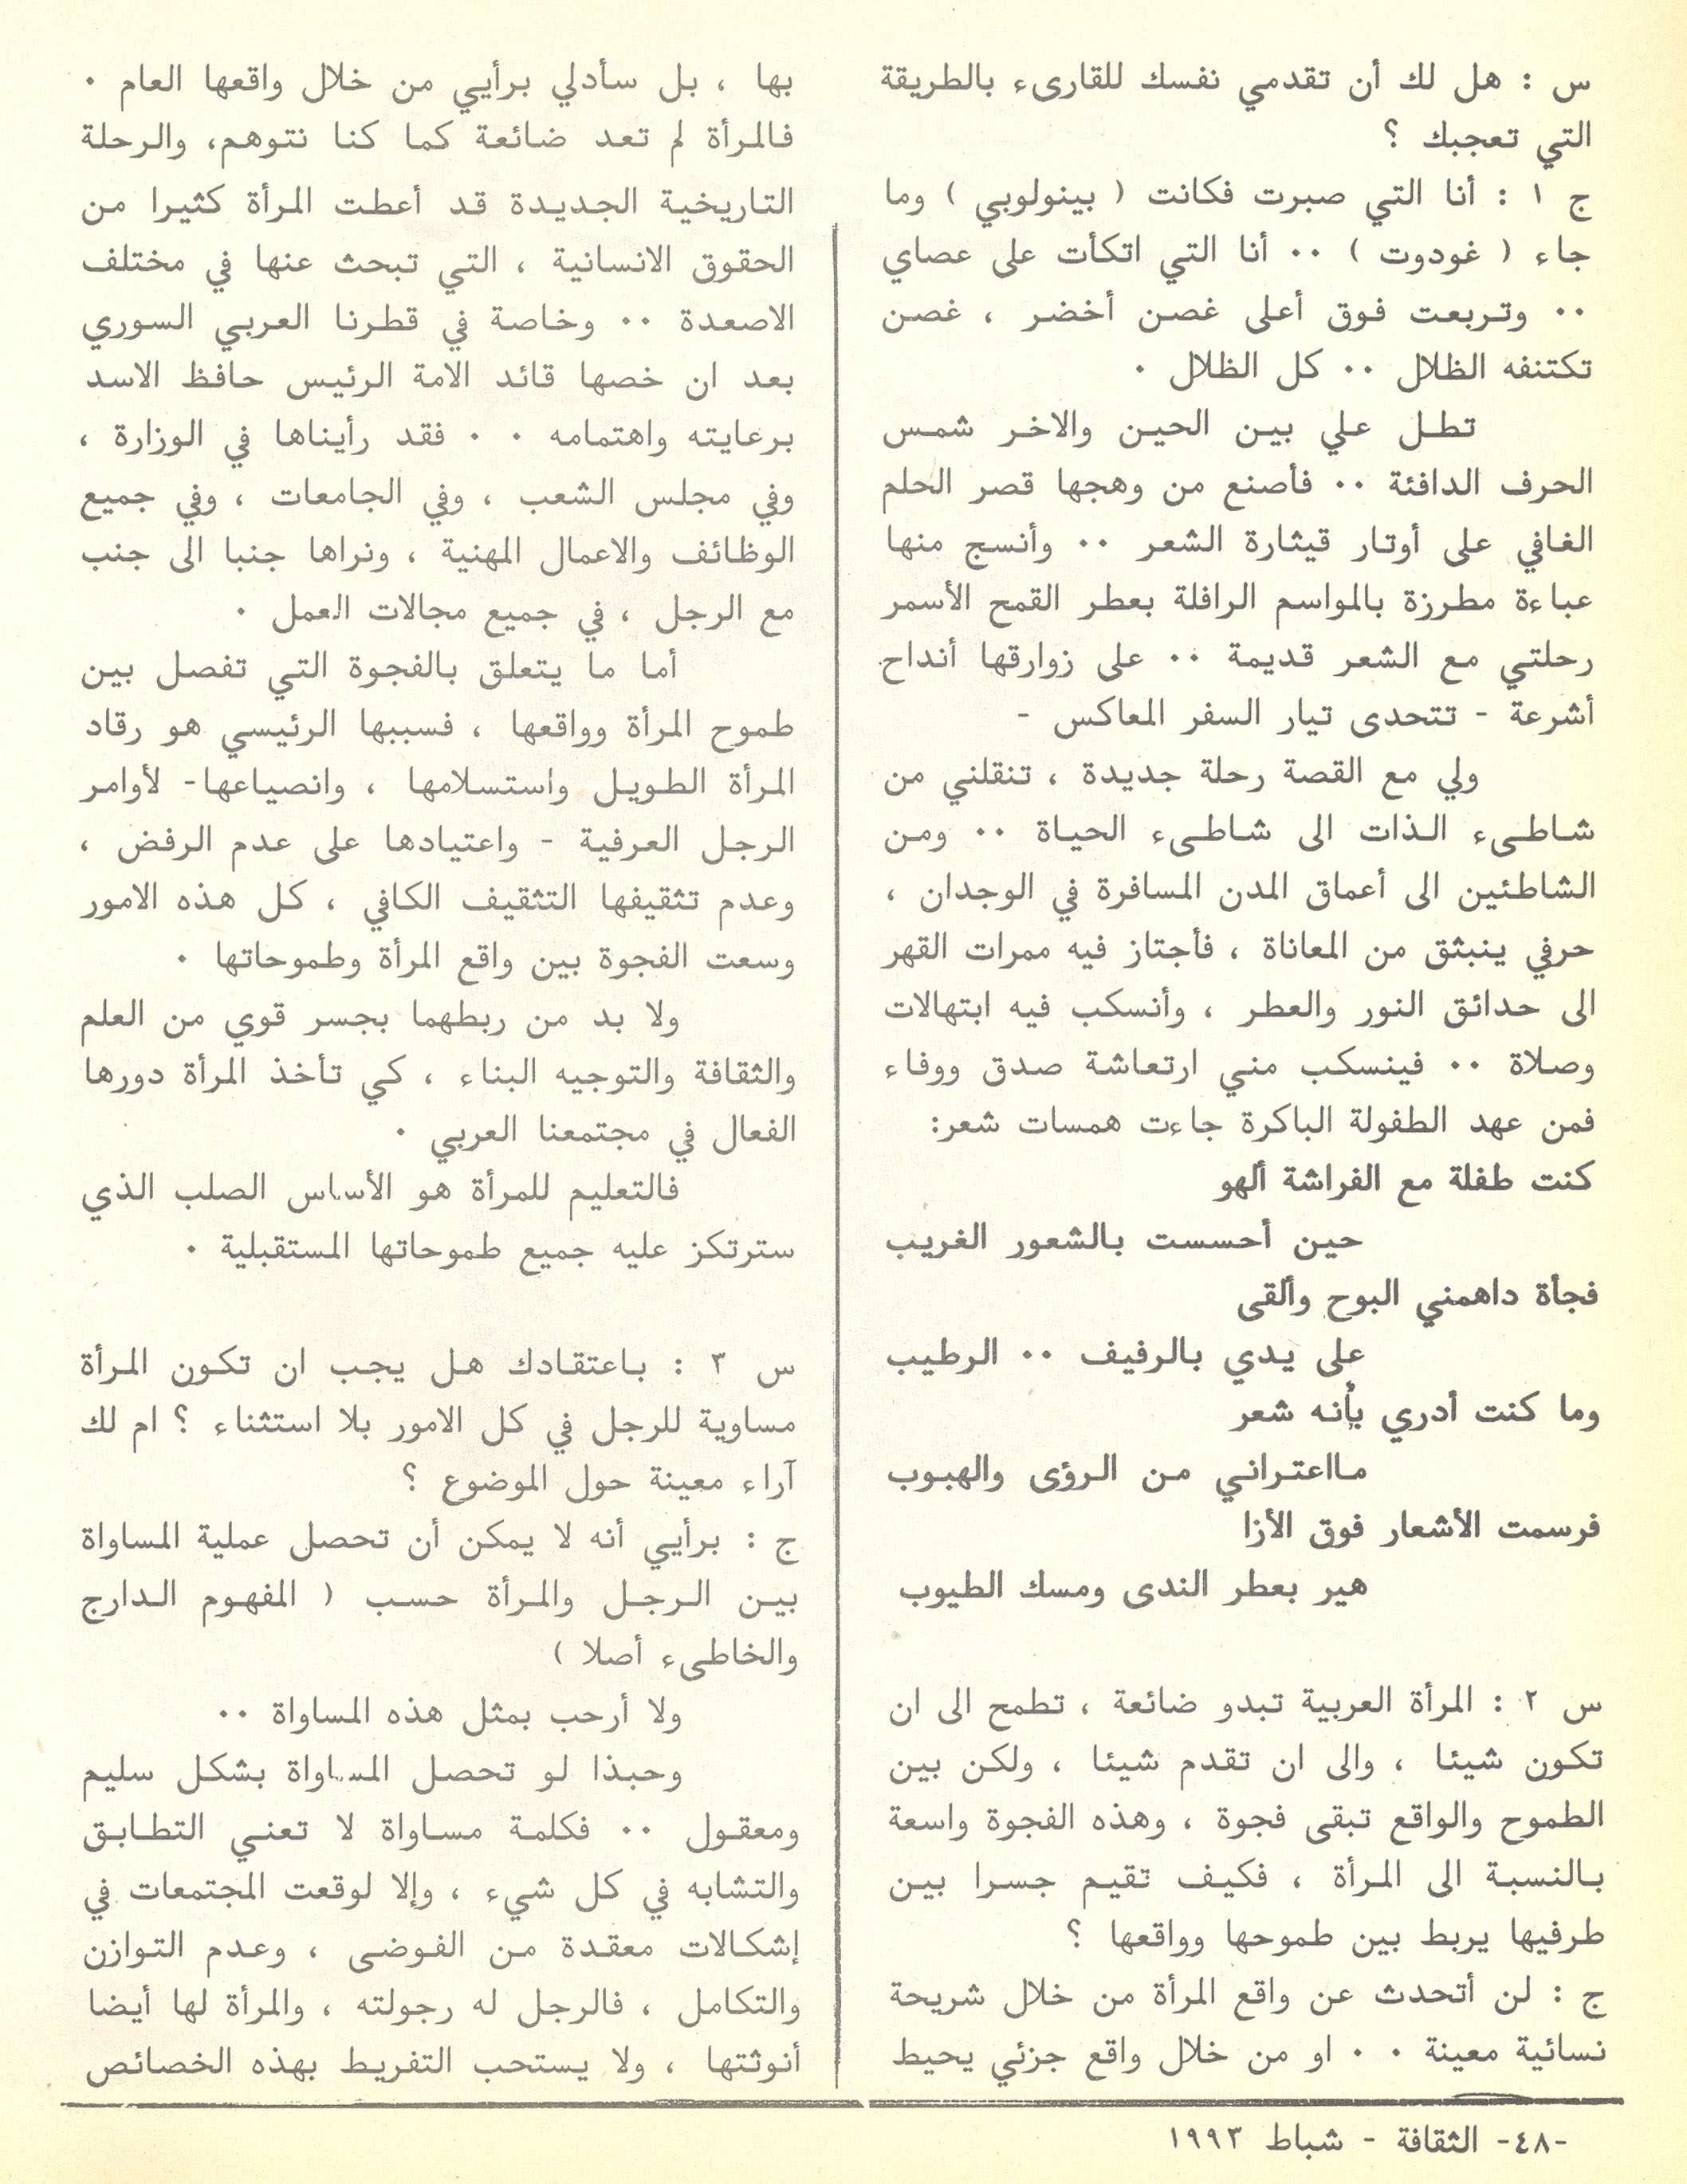 س : هل لك أن تقدمي نفسك للقارىء بالطريقة
التي تعجبك ؟
ج ١ : أنا التي صبرت فكانت ( بينولوبي ) وما
جاء ( غودوت ) ٠٠ أنا التي اتكأت على عصاي
٠٠ وتربعت فوق أعلى غصن أخضر ، غصن
تكتنفه الظلال ٠٠ كل الظلال ٠
تطل علي بين الحين والاخر شمس
الحرف الدافئة ٠٠ فأصنع من وهجها قصر الحلم
الغافي على أوتار قيثارة الشعر ٠٠ وأنسج منها
عباءة مطرزة بالمواسم الرافلة بعطر القمح الأسمر
رحلتي مع الشعر قديمة ٠٠ على زوارقها أنداح
أشرعة - تتحدى تيار السفر المعاكس -
ولي مع القصة رحلة جديدة ، تنقلني من
شاطىء الذات الى شاطىء الحياة ٠٠ ومن
الشاطئين الى أعماق المدن المسافرة في الوجدان ،
حرفي ينبثق من المعاناة ، فأجتاز فيه ممرات القهر
الى حدائق النور والعطر ، وأنسكب فيه ابتهالات
وصلاة ٠٠ فينسكب مني ارتعاشة صدق ووفاء
فمن عهد الطفولة الباكرة جاءت همسات شعر:
كنت طفلة مع الفراشة ألهو
حين أحسست بالشعور الغريب
فجأة داهمني البوح وألقى
على يدي بالرفيف ٠٠ الرطيب
وما كنت أدري بأنه شعر
مااعتراني من الرؤى والهبوب
فرسمت الأشعار فوق الأزا
هير بعطر الندى ومسك الطيوب
س ٢ : المرأة العربية تبدو ضائعة ، تطمح الى ان
تكون شيئا ، والى ان تقدم شيئا ، ولكن بين
الطموح والواقع تبقى فجوة ، وهذه الفجوة واسعة
بالنسبة الى المرأة ، فكيف تقيم جسرا بين
طرفيها يربط بين طموحها وواقعها ؟
ج : لن أتحدث عن واقع المرأة من خلال شريحة
نسائية معينة ٠ ٠ او من خلال واقع جزئي يحيط
بها ، بل سأدلي برأيي من خلال واقعها العام ٠
فالمرأة لم تعد ضائعة كما كنا نتوهم، والرحلة
التاريخية الجديدة قد أعطت المرأة كثيرا من
الحقوق الانسانية ، التي تبحث عنها في مختلف
الاصعدة ٠٠ وخاصة في قطرنا العربي السوري
بعد ان خصها قائد الامة الرئيس حافظ الاسد
برعايته واهتمامه ٠ ٠ فقد رأيناها في الوزارة ،
وفي مجلس الشعب ، وفي الجامعات ، وفي جميع
الوظائف والاعمال المهنية ، ونراها جنبا الى جنب
مع الرجل ، في جميع مجالات العمل ٠
أما ما يتعلق بالفجوة التي تفصل بين
طموح المرأة وواقعها ، فسببها الرئيسي هو رقاد
المرأة الطويل واستسلامها ، وانصياعها- لأوامر
الرجل العرفية - واعتيادها على عدم الرفض ،
وعدم تثقيفها التثقيف الكافي ، كل هذه الامور
وسعت الفجوة بين واقع المرأة وطموحاتها ٠
ولا بد من ربطهما بجسر قوي من العلم
والثقافة والتوجيه البناء ، كي تأخذ المرأة دورها
الفعال في مجتمعنا العربي ٠
فالتعليم للمرأة هو الأساس الصلب الذي
سترتكز عليه جميع طموحاتها المستقبلية ٠
س ٣ : باعتقادك هل يجب ان تكون المرأة
مساوية للرجل في كل الامور بلا استثناء ؟ ام لك
آراء معينة حول الموضوع ؟
ج : برأيي أنه لا يمكن أن تحصل عملية المساواة
بين الرجل والمرأة حسب ( المفهوم الدارج
والخاطىء أصلا )
ولا أرحب بمثل هذه المساواة ٠٠
وحبذا لو تحصل المساواة بشكل سليم
ومعقول ٠٠ فكلمة مساواة لا تعني التطابق
والتشابه في كل شيء ، وإلا لوقعت المجتمعات في
إشكالات معقدة من الفوضى ، وعدم التوازن
والتكامل ، فالرجل له رجولته ، والمرأة لها أيضا
أنوثتها ، ولا يستحب التفريط بهذه الخصائص
-٤٨- الثقافة - شباط ١٩٩٣